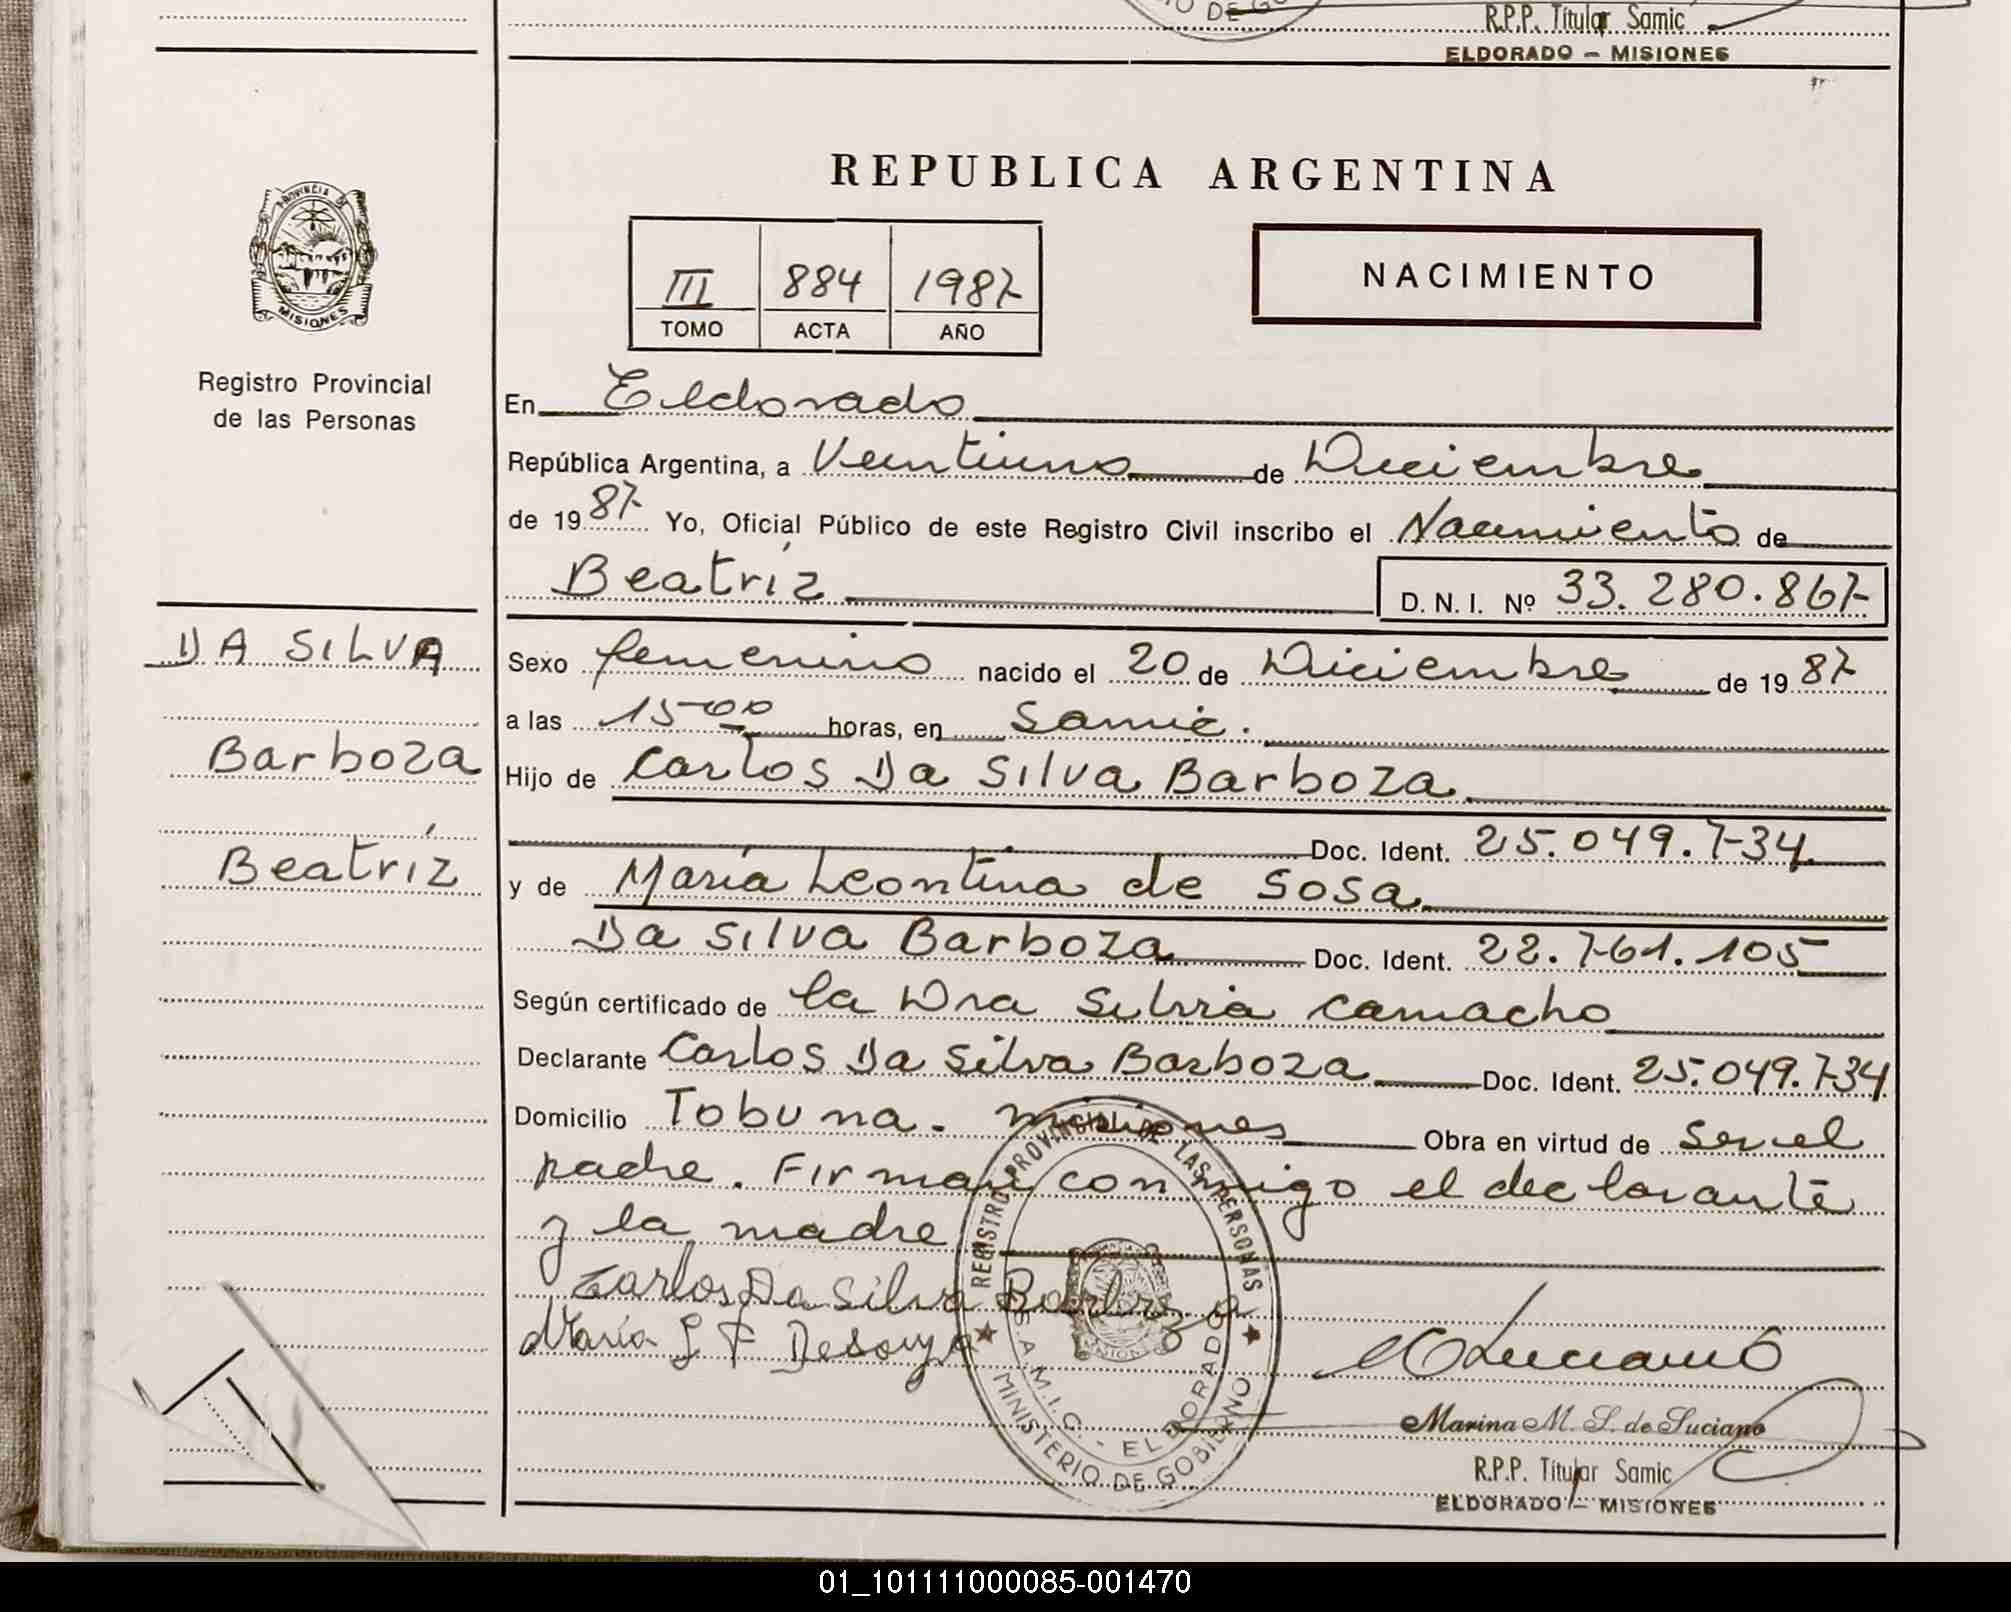 R.P.P. Titular Samic
ELDORADO - MISIONES
REPUBLICA ARGENTINA
PROVINCIA DE
MISIONES
III 884 1987
TOMO ACTA AÑO
NACIMIENTO
Registro Provincial
de las Personas
En Eldorado
República Argentina, a Ventiuno de Diciembre
de 1987 Yo, Oficial Público de este Registro Civil inscribo el Nacimiento de
Beatríz D. N. I. Nº 33.280.867
DA SILVA
Barboza
Beatríz
Sexo femenino nacido el 20 de Diciembre de 1987
a las 15.00 horas, en Samic.
Hijo de Carlos Da Silva Barboza
Doc. Ident. 25.049.734
y de María Leontina de Sosa
Da Silva Barboza Doc. Ident. 22.761.105
Según certificado de la Dra Silvia Camacho
Declarante Carlos Da Silva Barboza Doc. Ident. 25.049.734
Domicilio Tobuna. Misiones Obra en virtud de ser el
padre. Firman conmigo el declarante
y la madre
Carlos Da Silva Barboza
María L F Desouza
REGISTRO PROVINCIAL DE LAS PERSONAS
S.A.M.I.C. - ELDORADO
MINISTERIO DE GOBIERNO
Marina M. S. de Luciano
R.P.P. Titular Samic
ELDORADO - MISIONES
01_101111000085-001470